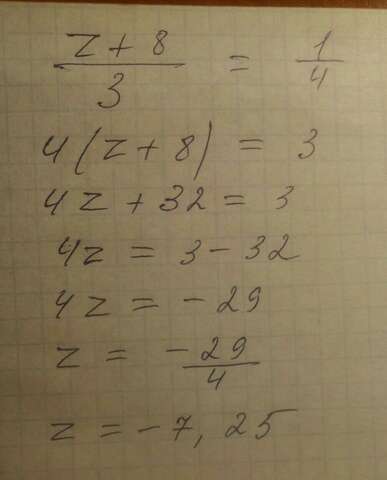 z + 8 / 3 = 1 / 4
4(z + 8) = 3
4z + 32 = 3
4z = 3 - 32
4z = - 29
z = - 29 / 4
z = - 7, 25